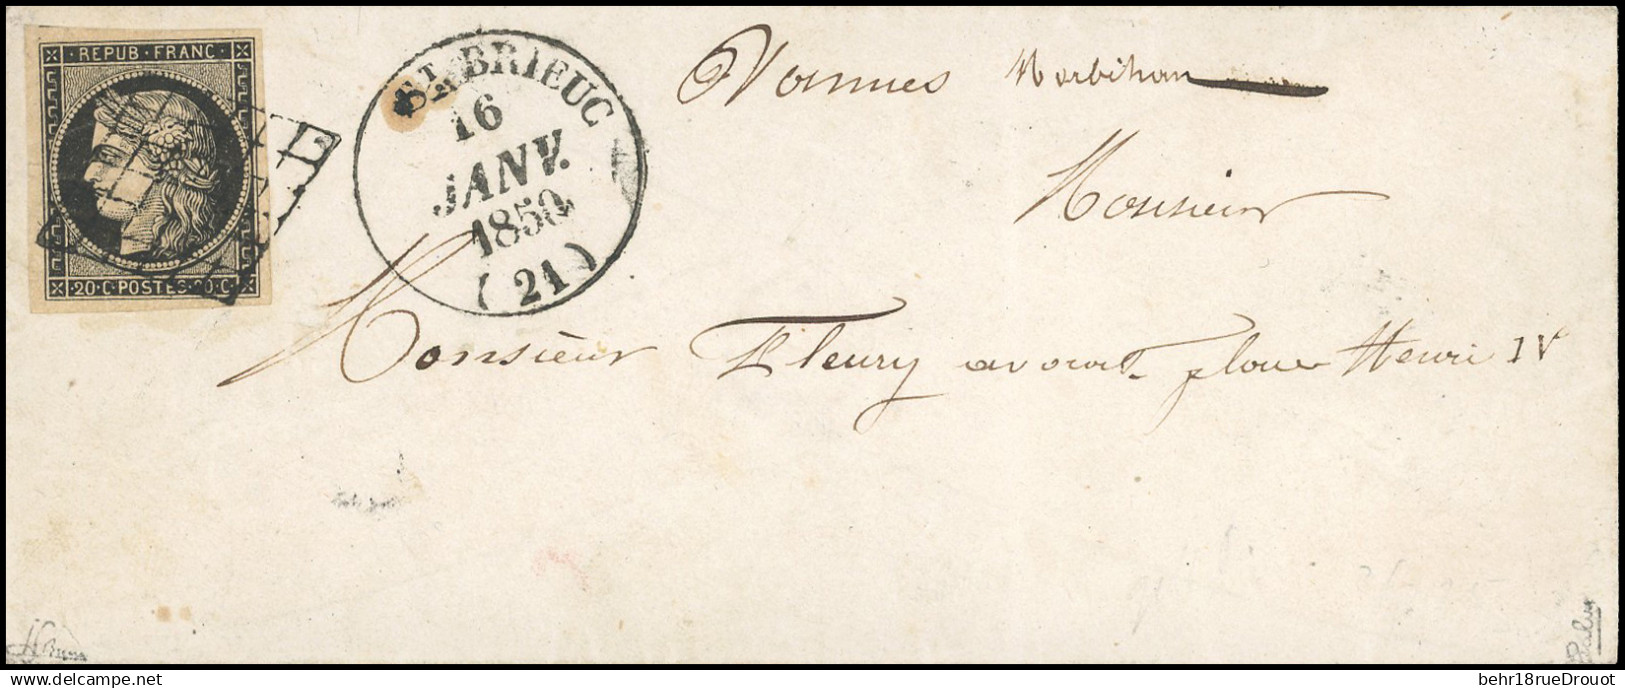 REPUB·FRANC·
·20·C·POSTES·20·C·
ST BRIEUC
16
JANV.
1850
(21)
Vannes Morbihan
Monsieur
Monsieur Fleury avocat place Henri IV
behr18rueDrouot